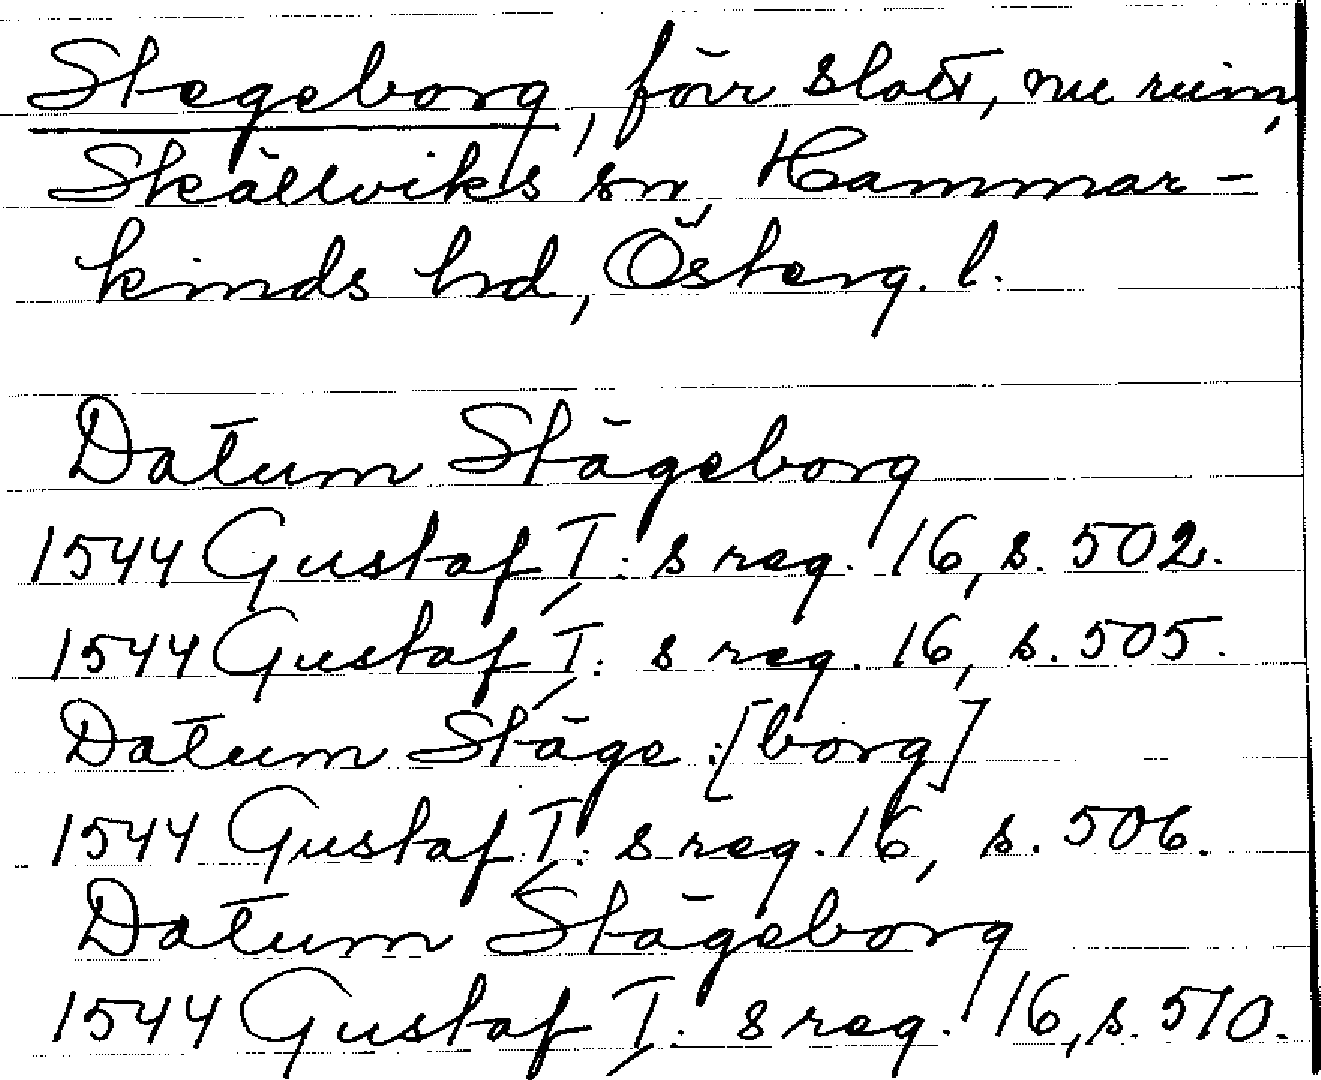 Stegeborg, förr slott, nu ruin,
Skällviks sn, Hammar-
kinds hd, Österg. l.
Datum Stägeborg
1544 Gustaf I: s reg. 16, s. 502.
1544 Gustaf I: s reg. 16, s. 505.
Datum Stäge:[borg]
1544 Gustaf I: s reg. 16, s. 506.
Datum Stägeborg
1544 Gustaf I: s reg. 16, s. 510.